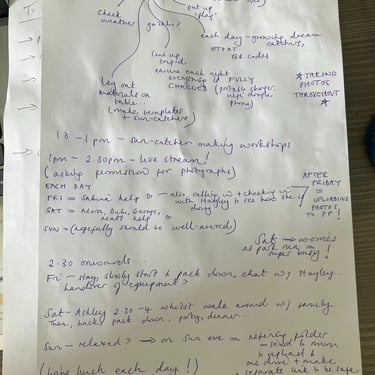 put up flag
Check weather
gazebo?
each day - growing dream catchers,
QR codes
line up tripod
ensure each night everything is FULLY CHARGED (portable charger, phone)
Lay out materials on table...
(make templates + sun-catchers)
★ TAKING PHOTOS THROUGHOUT ★
- 1pm - sun-catcher making workshops
1pm - 2.30pm - live stream!
(asking permission for photographs)
EACH DAY
FRI = Sabina help - also calling in + checking in with Hayley to see how she is doing
SAT = Mum, Dad, George, Matt help
SUN = (hopefully should be well-attended)
AFTER FRIDAY = UPLOADING PHOTOS TO PP!
Sat → worries as park run = super busy!
2.30 onwards...
Fri - stay, slowly start to pack down, chat w/ Hayley... handover of equipment?
Sat - Ashley 2.30-4 whilst walk around w/ family.
Then, back, pack down, party, dinner...
Sun - relaxed? → on Sun eve =
folder
→ send to mum to upload to one drive + make separate link to be safe
(bring lunch each day!)